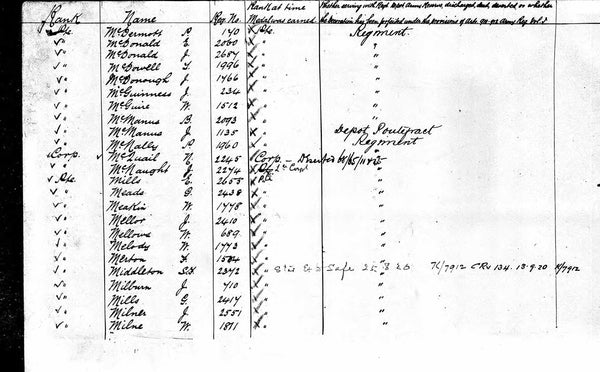 Rank Name Reg. No. Rank at time Medal was earned Whether serving with Regt Depot Army Reserve, discharged, dead, deserted, or whether
the decoration has been forfeited under the provisions of Arts.
Pte. McDermott P. 140 Pte. Regiment.
" McDonald E. 2060 " "
" McDonald J. 2687 " "
" McDowell T. 1996 " "
" McDonough J. 1766 " "
" McGuinness J. 234 " "
" McGuire W. 1512 " "
" McManus B. 2093 " "
" McManus J. 1135 " Depot Pontefract
" McNally P. 1960 " Regiment
Corp. McQuail N. 2245 Corp. — Deserted
" McNaught J. 2274 "
Pte. Mills E. 2655 Pte. "
" Meads G. 2438 " "
" Meakin W. 1778 " "
" Mellor J. 2410 " "
" Mellows W. 689 " "
" Melody W. 1773 " "
" Merton F. "
" Middleton 2372 " Safe 76/7912 CRV 134. 18.9.20 /7912
" Milburn J. 710 " "
" Mills G. 2417 " "
" Milner J. 2551 " "
" Milne W. 1871 " "